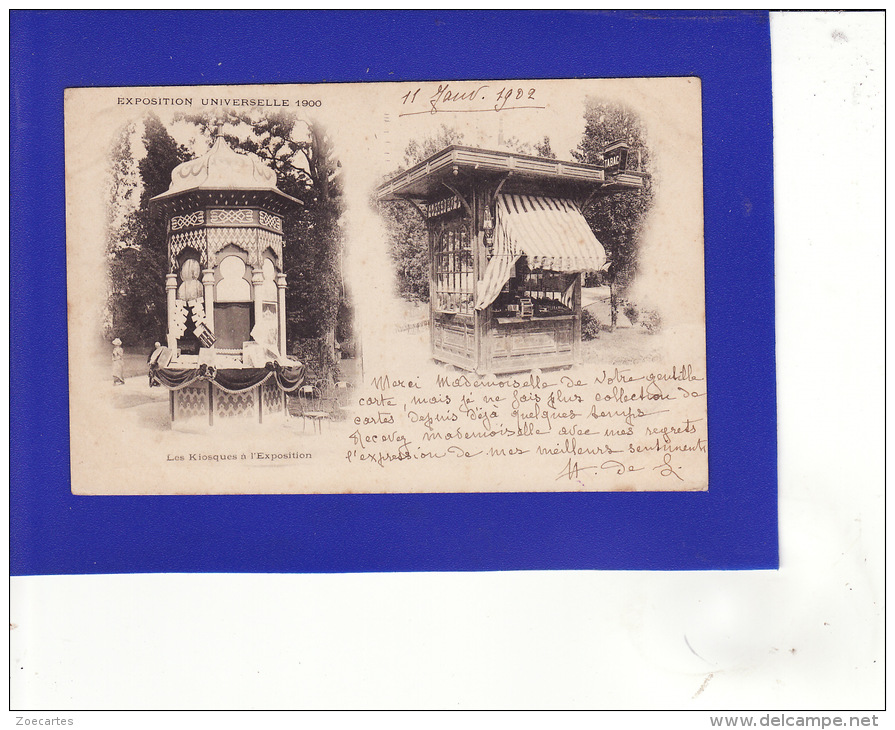 EXPOSITION UNIVERSELLE 1900
11 Janv. 1902
TABAC
Merci Mademoiselle de votre gentille
carte, mais je ne fais plus collection de
cartes depuis déjà quelques temps
Recevez Mademoiselle avec mes regrets
l'expression de mes meilleurs sentiments
H. de L.
Les Kiosques à l'Exposition
Zoecartes
www.delcampe.net